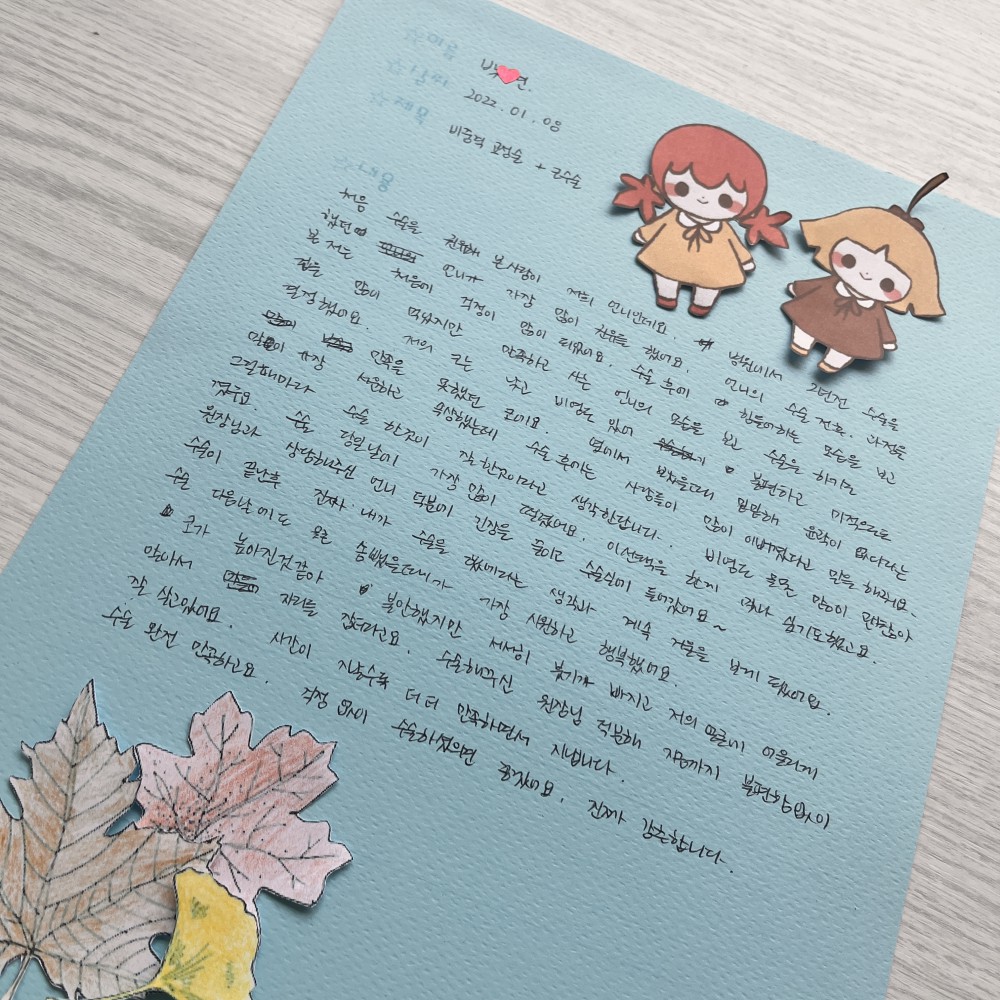 2022. 01. 08
비중격 교정술 + 코수술
처음 수술을 권유해 본사람이 저희 언니인데요. 병원에서 2년전 수술을
했던 언니가 가장 많이 권유를 했어요. 언니의 수술 전후. 과정을
본 저는 처음에 걱정이 많이 되었어요. 수술 후에 힘들어하는 모습을 보고
겁을 많이 먹었지만 만족하고 사는 언니의 모습을 보고 수술을 하기로
결정했어요. 저의 코는 낮고 비염도 있어 불편하고 미적으로
만족을 못했던 코에요. 옆에서 보았을때 밋밋해 윤곽이 없다라는
말이 가장 서운하고 속상했는데 수술 후에는 사람들이 많이 이뻐졌다고 말을 해줘요.
그럴때마다 수술 한것이 잘한것이라고 생각한답니다. 비염도 물론 많이 괜찮아
졌구요. 수술 당일날에 가장 많이 떨렸어요. 이선택을 한게 맞나 싶기도했고요.
원장님과 상담해주신 언니 덕분에 긴장을 줄이고 수술실에 들어갔어요~
수술이 끝난후 진짜 내가 수술을 했네라는 생각과 계속 거울을 보게 됐어요.
수술 다음날에 또 솜뺐을때가 가장 시원하고 행복했어요.
코가 높아진것같아 불안했지만 서서히 붓기가 빠지고 저의 얼굴에 어울리게
맞아서 자리를 잡더라고요. 수술해주신 원장님 덕분에 지금까지 불편함없이
잘 살고있어요. 시간이 지날수록 더 더 만족하면서 지냅니다.
수술 완전 만족하고요. 걱정 없이 수술하셨으면 좋겠어요. 진짜 감사합니다.